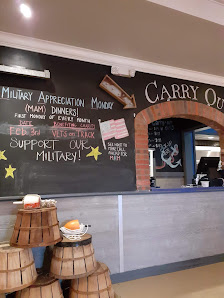 Military Appreciation Monday
(MAM) Dinners
First Monday of Every Month
Date Benefiting Charity
Feb 3rd Vets on Track
Support Our
Military!
Carry Ou